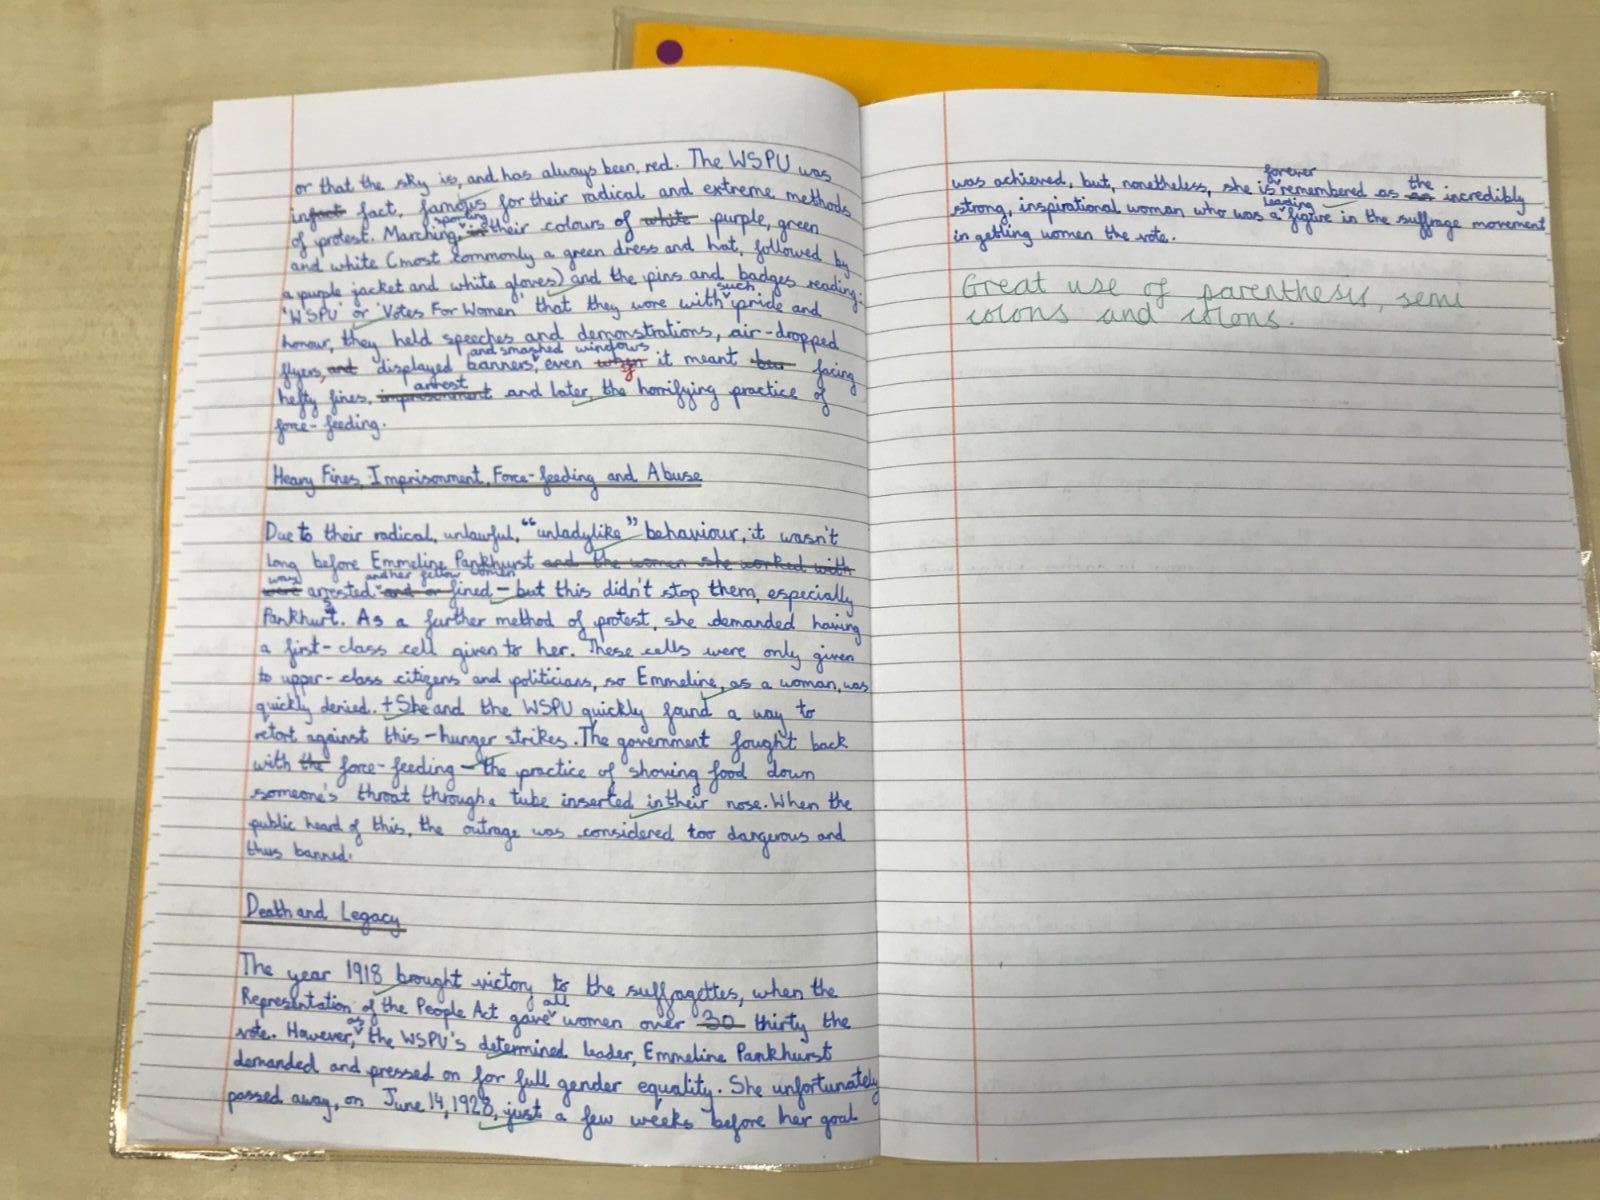 or that the sky is, and has always been, red. The WSPU was
infact fact, famous for their radical and extreme methods
sporting
of protest. Marching in their colours of white purple, green
and white (most commonly a green dress and hat, followed by
a purple jacket and white gloves) and the pins and badges reading:
such
'WSPU' or 'Votes For Women' that they wore with pride and
honour, they held speeches and demonstrations, air-dropped
and smashed windows
flyers, and displayed banners, even when it meant but facing
arrest
hefty fines, imprisonment and later, the horrifying practice of
force-feeding.
Heavy Fines, Imprisonment, Force-feeding and Abuse
Due to their radical, unlawful, "unladylike" behaviour, it wasn't
long before Emmeline Pankhurst and the women she worked with
was and her fellow women
were arrested and or fined - but this didn't stop them, especially
s
Pankhurt. As a further method of protest, she demanded having
a first-class cell given to her. These cells were only given
to upper-class citizens and politicians, so Emmeline, as a woman, was
quickly denied. + She and the WSPU quickly found a way to
retort against this - hunger strikes. The government fought back
with the force-feeding - the practice of shoving food down
someone's throat through a tube inserted in their nose. When the
public heard of this, the outrage was considered too dangerous and
thus banned.
Death and Legacy
The year 1918 brought victory to the suffragettes, when the
all
Representation of the People Act gave women over 30 thirty the
as
vote. However, the WSPU's determined leader, Emmeline Pankhurst
demanded and pressed on for full gender equality. She unfortunately
passed away, on June 14, 1928, just a few weeks before her goal
forever the
was achieved, but, nonetheless, she is remembered as an incredibly
leading
strong, inspirational woman who was a figure in the suffrage movement
in getting women the vote.
Great use of parenthesis, semi
colons and colons.